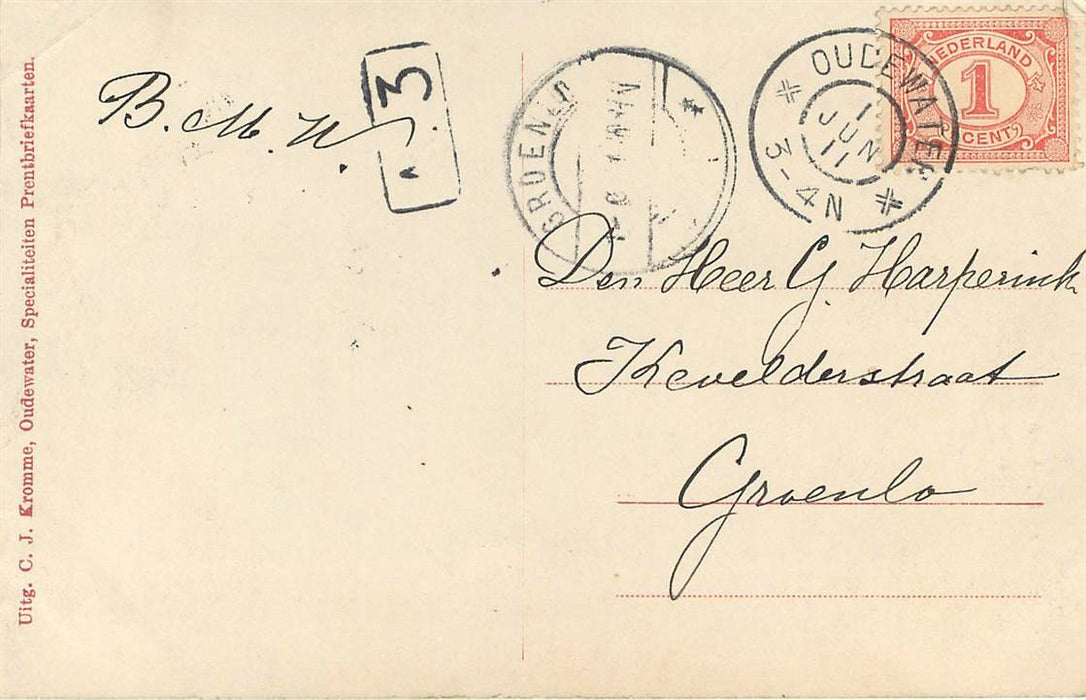 Uitg. C. J. Kromme, Oudewater, Specialiteiten Prentbriefkaarten.
B. M. N.
3
GROENLO
OUDEWATER
1
JUN
11
3-4N
NEDERLAND
1
CENT
Den Heer G. Harperink
Kevelderstraat
Groenlo